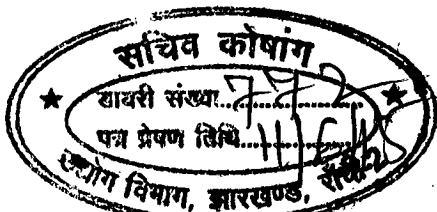 सचिव कोषांग
डायरी संख्या 772
पत्र प्रेषण तिथि 11/6/
उद्योग विभाग, झारखण्ड, राँची